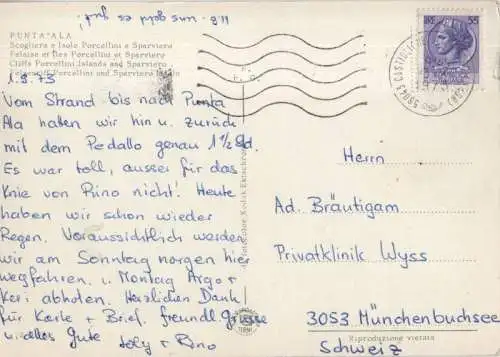 Uns geht es gut!
PUNTA ALA
Scogliera e Isole Porcellini e Sparviero
Falaise et Iles Porcellini et Sparviero
Cliffs Porcellini Islands and Sparviero
1.9.73
Vom Strand bis nach Punta
Ala hatten wir hin u. zurück
mit dem Pedallo genau 1½ Std.
Es war toll, ausser für das
Knie von Rino nicht! Heute
haben wir schon wieder
Regen. Voraussichtlich werden
wir am Sonntag morgen hier
wegfahren. u. Montag Argo +
Keri abholen. Herzlichen Dank
für Karte + Brief. freundl. Grüsse
u. alles Gute
Loly + Rino
Herrn
Ad. Bräutigam
Privatklinik Wyss
3053 Münchenbuchsee
Schweiz
Riproduzione vietata
58043